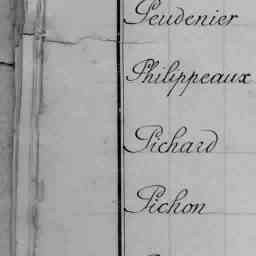 Peudenier
Philippeaux
Pichard
Pichon